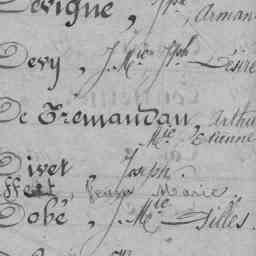 Devigne, Jph Arman
Devy, J. Mie Jph Désiré
De Tremandan, Arthu
Mie Etienne
Divet, Joseph.
ffeet, Jean Marie.
Dobé, J. Mie Gilles.